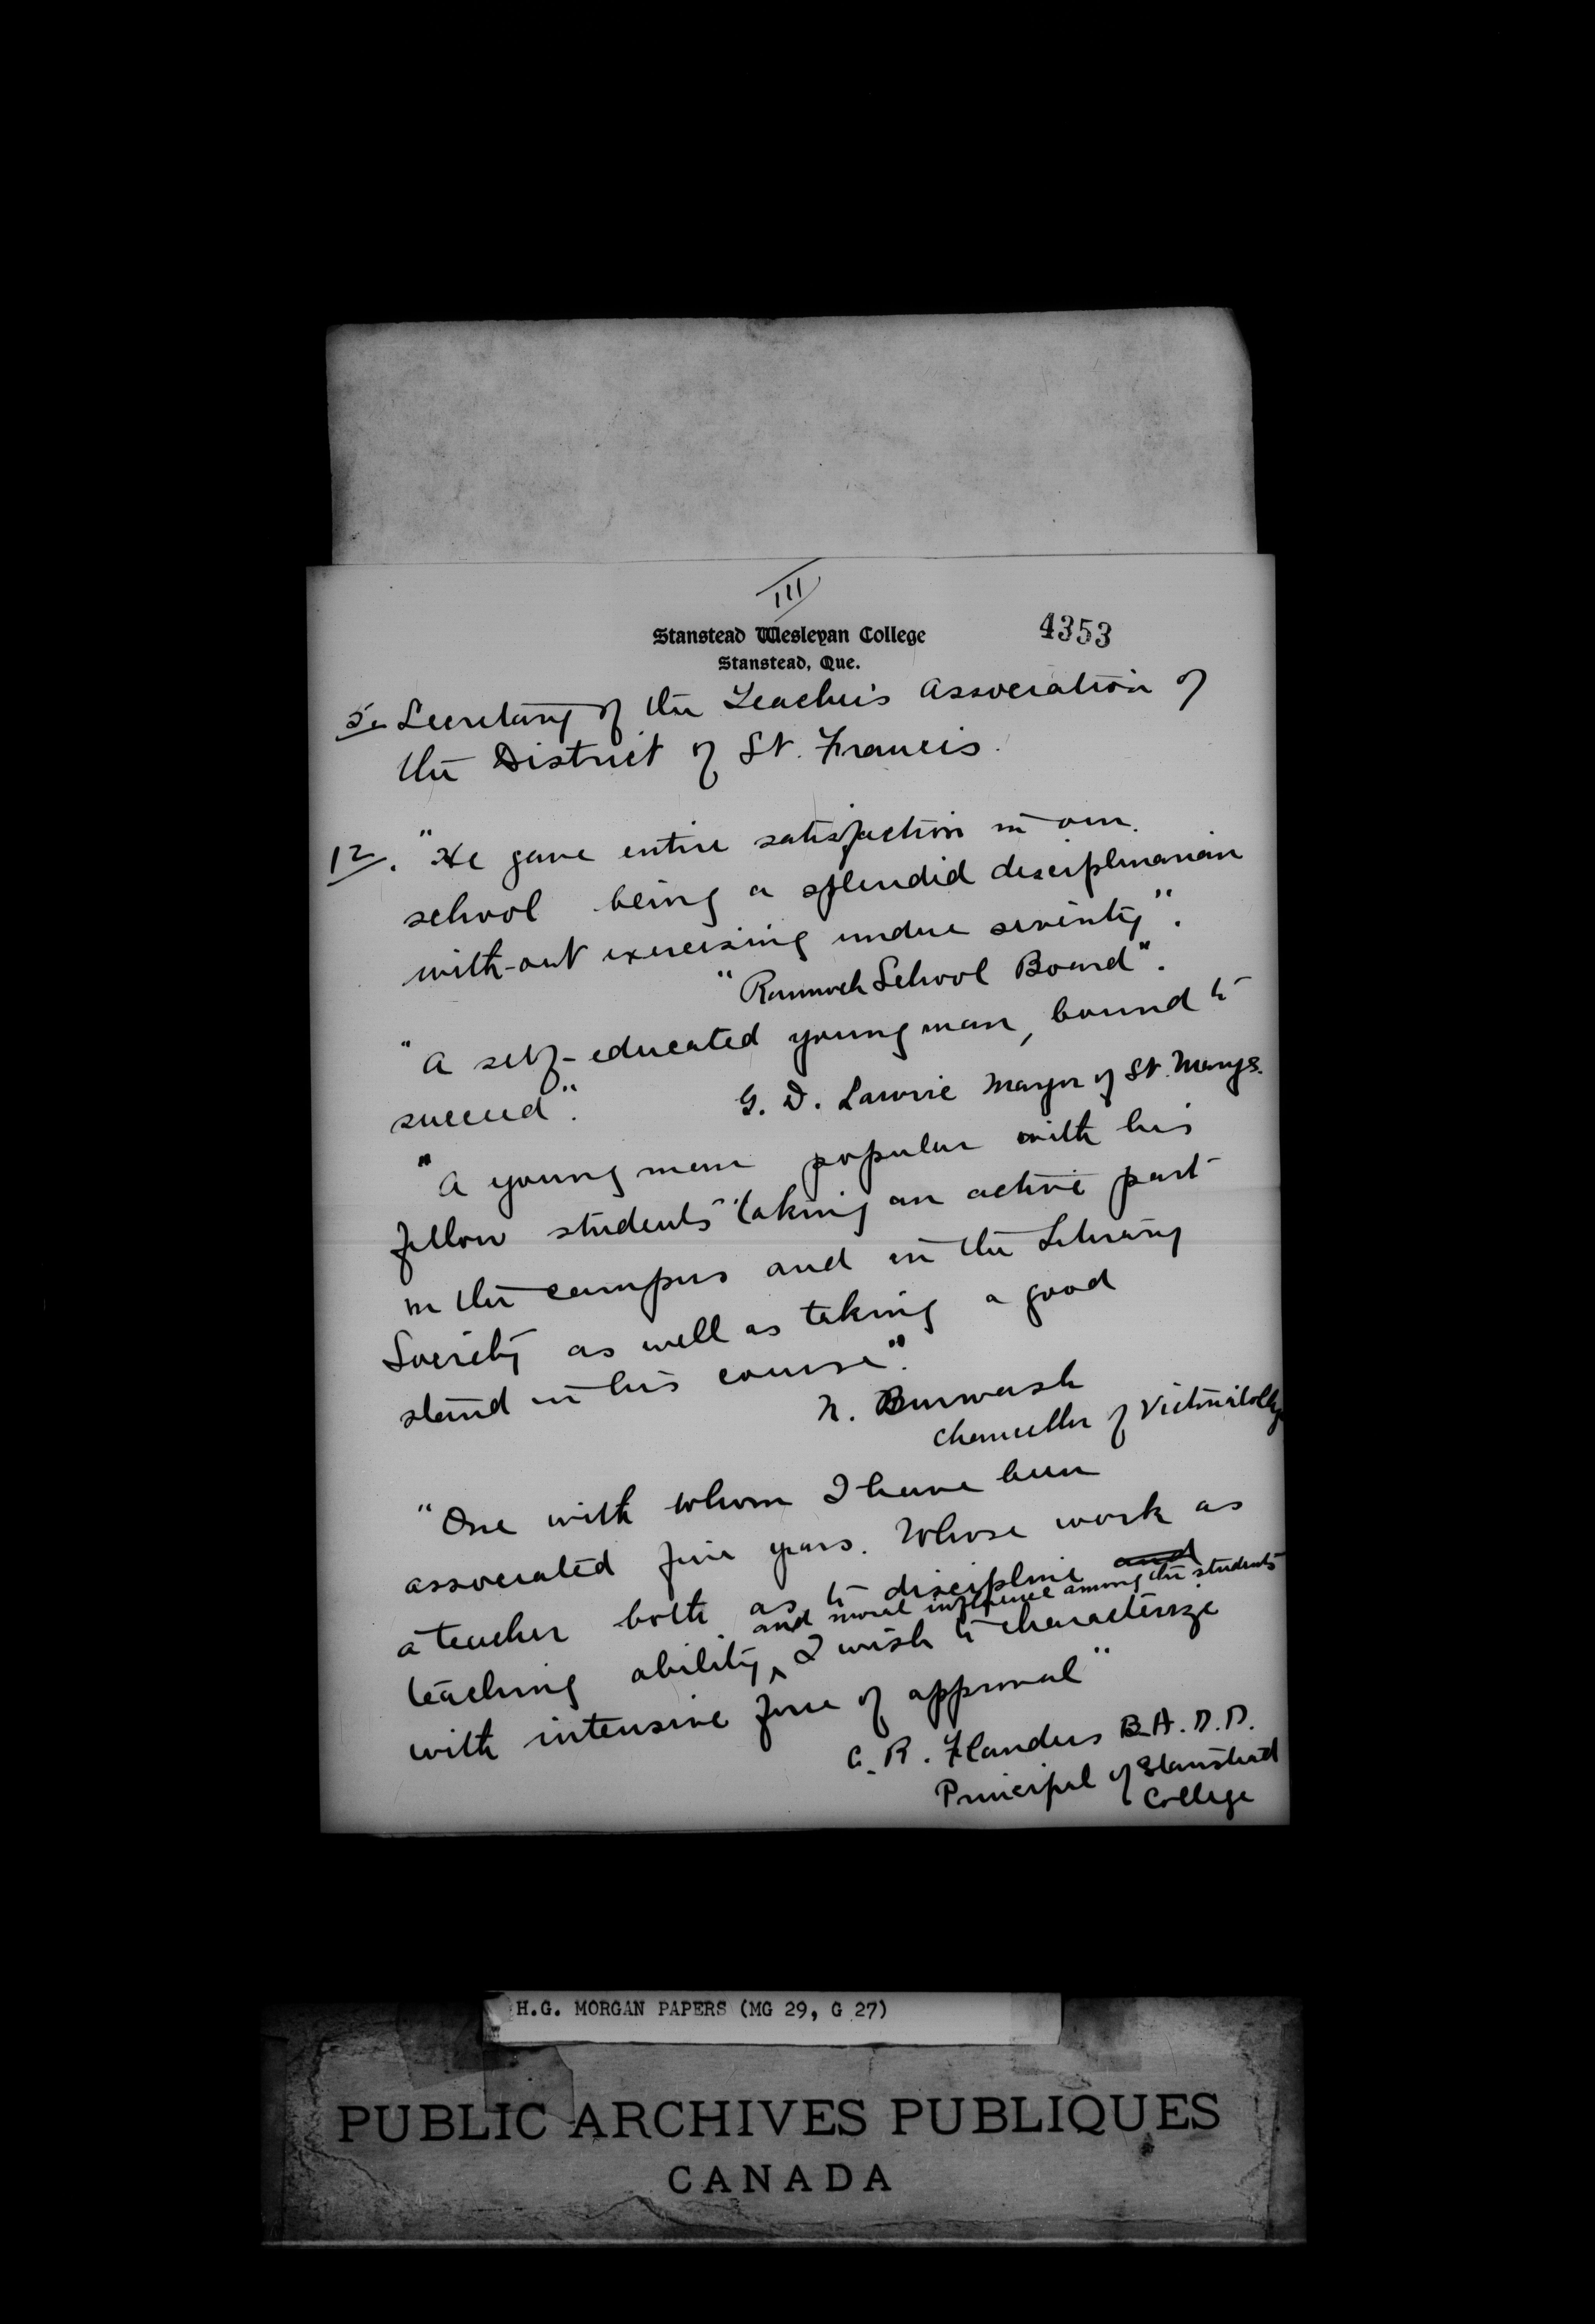 III
Stanstead Wesleyan College
4353
Stanstead, Que.
5. Secretary of the Teacher's Association of
the District of St. Francis.
12. "He gave entire satisfaction in our
school being a splendid disciplinarian
with-out exercising undue severity".
"Rannoch School Board".
"A self-educated young man, bound to
succeed".
G. D. Lawrie Mayor of St. Marys.
"A young man popular with his
fellow students" "taking an active part
in the campus and in the Literary
Society as well as taking a good
stand in his course".
N. Burwash
Chancellor of Victoria College
"One with whom I have been
associated five years. Whose work as
a teacher both as to discipline and
and moral influence among the students
teaching ability, I wish to characterize
with intensive force of approval"
C. R. Flanders B.A. D.D.
Principal of Stanstead
College
H.G. MORGAN PAPERS (MG 29, G 27)
PUBLIC ARCHIVES PUBLIQUES
CANADA